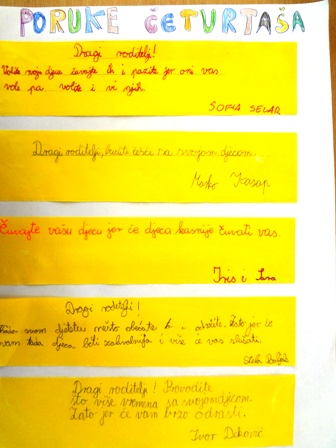 PORUKE ČETVRTAŠA
Dragi roditelji!
Volite svoju djecu čuvajte ih i pazite jer oni vas
vole pa volite i vi njih.
SOFIA SELAR
Dragi roditelji, budite češće sa svojom djecom.
Marko Kasap
Čuvajte vašu djecu jer će djeca kasnije čuvati vas.
Iris i Lara
Dragi roditelji!
svom djetetu nešto obećate to i održite. Zato jer će
vam tada djeca biti zahvalnija i više će vas slušati.
Dragi roditelji! Provodite
što više vremena sa svojom djecom.
Zato jer će vam brzo odrasti.
Ivor Đaković